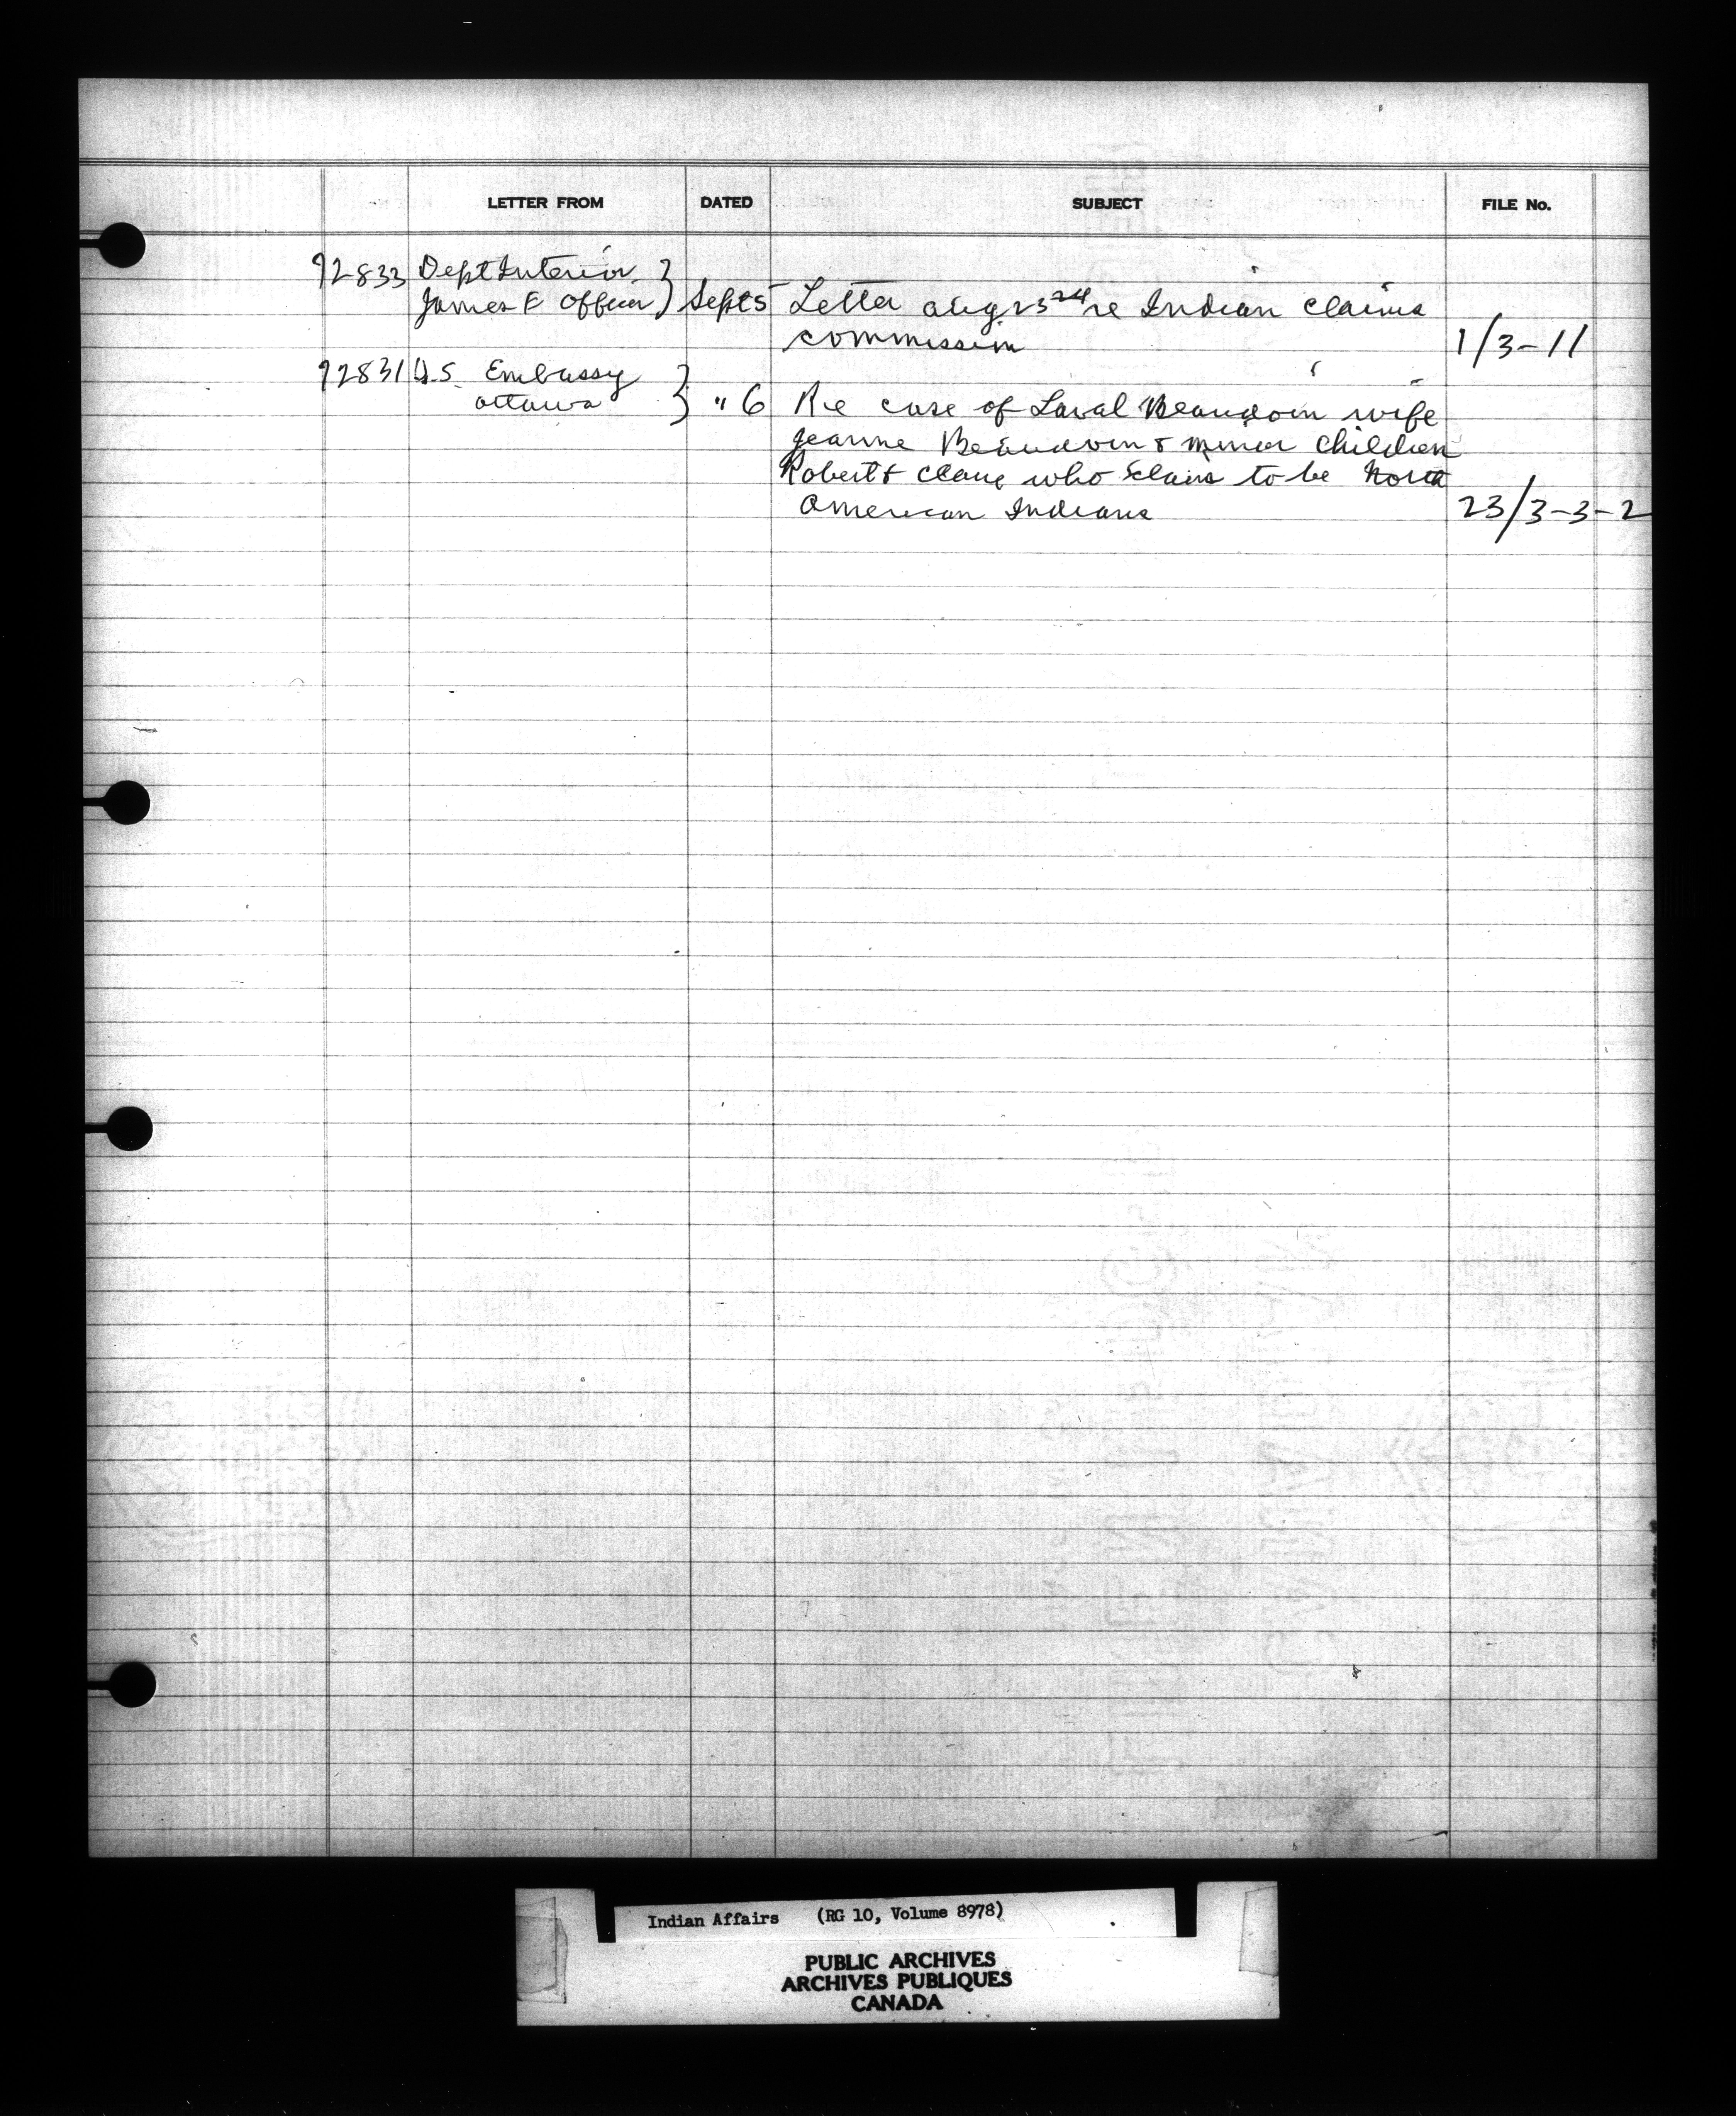 LETTER FROM DATED SUBJECT FILE No.
92833 Dept Interior
James E Officer } Sept 5 Letter Aug 23 re Indian Claims
commission 1/3-11
92831 U.S. Embassy
Ottawa } " 6 Re case of Laval Beaudoin wife
Jeanne Beaudoin & minor children
Robert & who claim to be North
American Indians 23/3-3-2
Indian Affairs (RG 10, Volume 8978)
PUBLIC ARCHIVES
ARCHIVES PUBLIQUES
CANADA